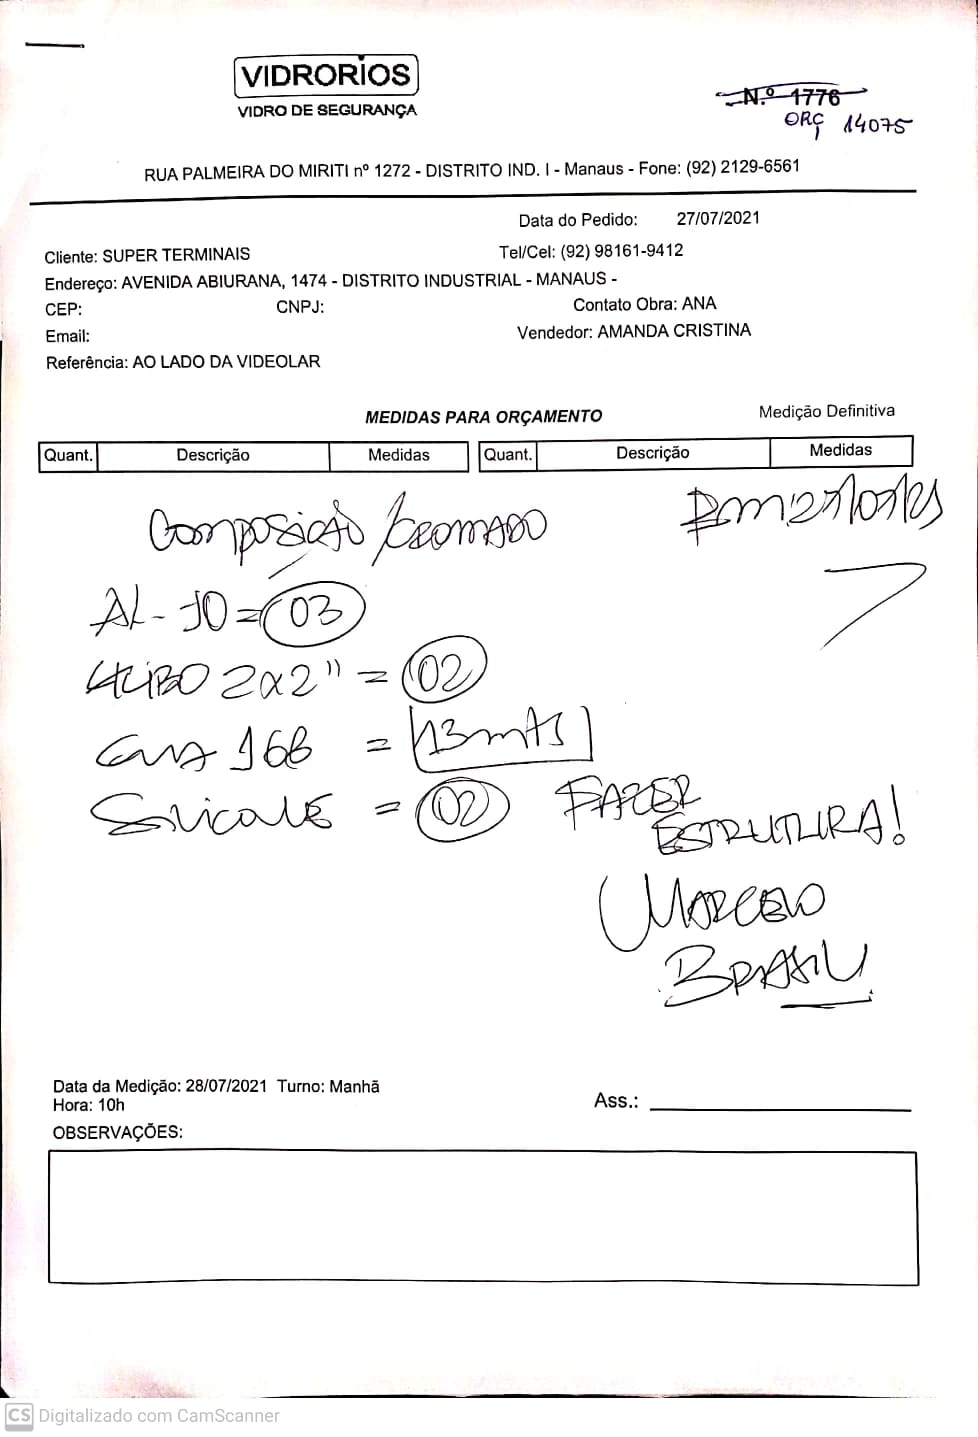 VIDRORIOS
VIDRO DE SEGURANÇA
N.º 1776
ORÇ 14075
RUA PALMEIRA DO MIRITI nº 1272 - DISTRITO IND. I - Manaus - Fone: (92) 2129-6561
Data do Pedido: 27/07/2021
Cliente: SUPER TERMINAIS
Tel/Cel: (92) 98161-9412
Endereço: AVENIDA ABIURANA, 1474 - DISTRITO INDUSTRIAL - MANAUS -
CEP: CNPJ: Contato Obra: ANA
Email: Vendedor: AMANDA CRISTINA
Referência: AO LADO DA VIDEOLAR
MEDIDAS PARA ORÇAMENTO Medição Definitiva
Quant. Descrição Medidas Quant. Descrição Medidas
Composição / CROMADO
AL-10 = 03
TUBO 2x2" = 02
168 = 13 mts
Silicone = 02
FAZER
ESTRUTURA!
MARCELO
BRASIL
Data da Medição: 28/07/2021 Turno: Manhã
Hora: 10h
Ass.:
OBSERVAÇÕES:
CS Digitalizado com CamScanner